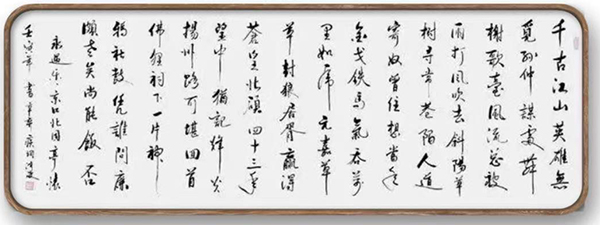 千古江山英雄無
覓孙仲謀處舞
榭歌臺風流总被
雨打風吹去斜陽草
樹尋常巷陌人道
寄奴曾住想當年
金戈铁馬氣吞万
里如虎元嘉草
草封狼居胥贏得
蒼皇北顧四十三年
望中猶記烽火
揚州路可堪回首
佛狸祠下一片神
鸦社鼓凭誰問廉
頗老矣尚能飯否
永遇乐京口北固亭懷
壬寅年書辛弃疾詞